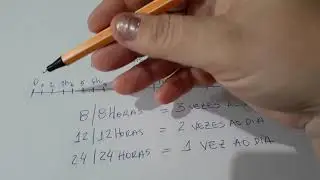 8/8HORAS = 3 VEZES AO
12/12HORAS = 2 VEZES AO DIA
24/24HORAS = 1 VEZ AO DIA